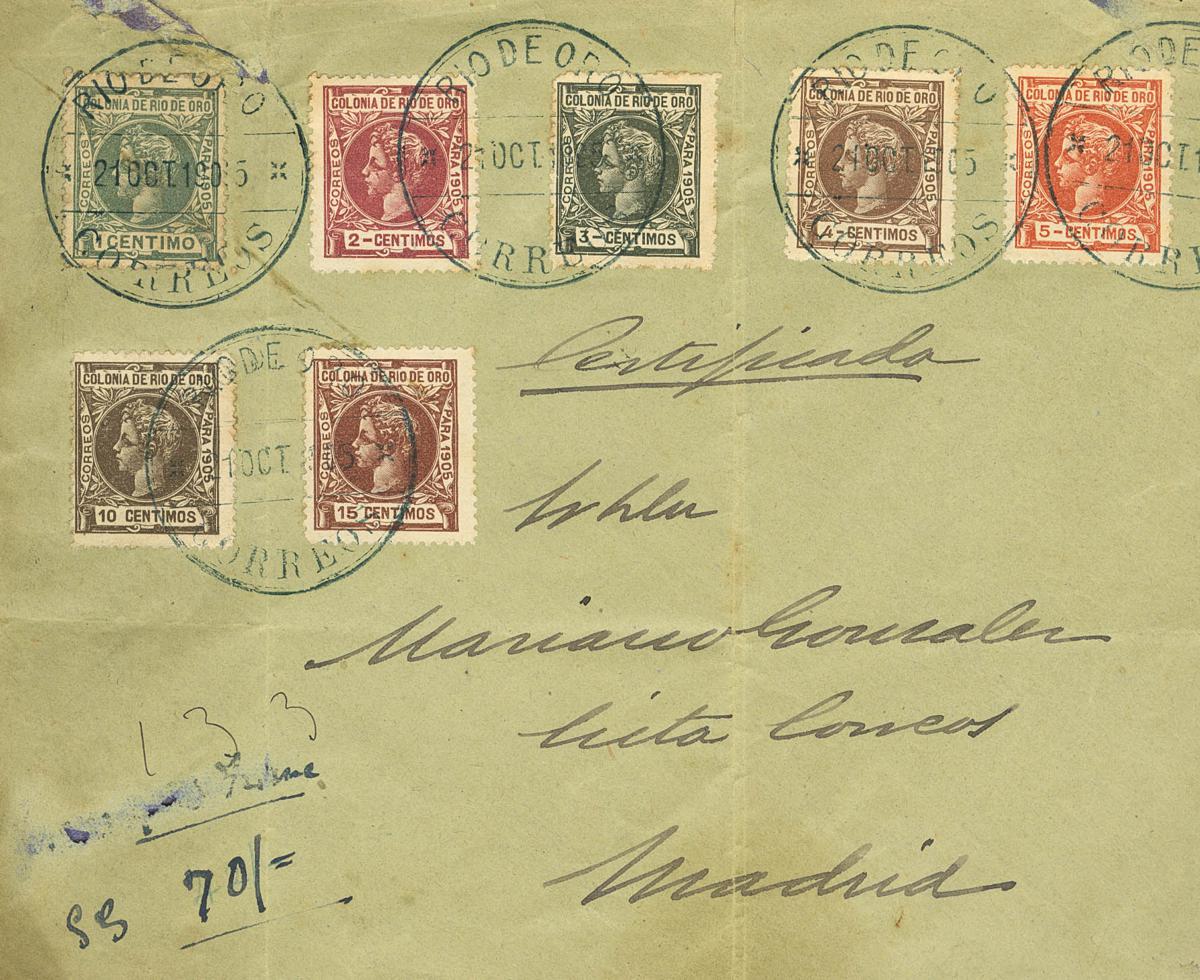 COLONIA DE RIO DE ORO
CORREOS
PARA 1905
1 CENTIMO
COLONIA DE RIO DE ORO
CORREOS
PARA 1905
2-CENTIMOS
COLONIA DE RIO DE ORO
CORREOS
PARA 1905
3-CENTIMOS
COLONIA DE RIO DE ORO
CORREOS
PARA 1905
4-CENTIMOS
COLONIA DE RIO DE ORO
CORREOS
PARA 1905
5-CENTIMOS
RIO DE ORO
21 OCT. 1905
CORREOS
RIO DE ORO
21 OCT. 1905
CORREOS
RIO DE ORO
21 OCT. 1905
CORREOS
RIO DE O
21 OCT. 1
CORR
COLONIA DE RIO DE ORO
CORREOS
PARA 1905
10 CENTIMOS
COLONIA DE RIO DE ORO
CORREOS
PARA 1905
15 CENTIMOS
RIO DE ORO
21 OCT. 1905
CORREOS
Certificada
Mariano Gonzalez
Lista Correos
Madrid
133
70/=
SS